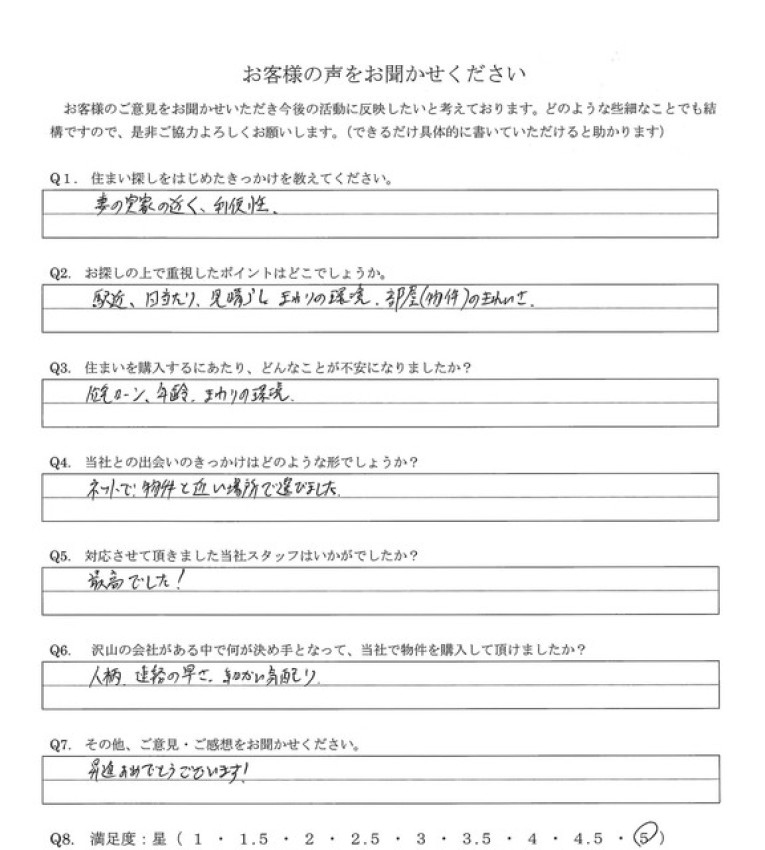 お客様の声をお聞かせください
お客様のご意見をお聞かせいただき今後の活動に反映したいと考えております。どのような些細なことでも結
構ですので、是非ご協力よろしくお願いします。（できるだけ具体的に書いていただけると助かります）
Q1. 住まい探しをはじめたきっかけを教えてください。
妻の実家の近く、利便性、
Q2. お探しの上で重視したポイントはどこでしょうか。
駅近、日当たり、見晴らし まわりの環境、部屋(物件)のきれいさ、
Q3. 住まいを購入するにあたり、どんなことが不安になりましたか？
住宅ローン、年齢、まわりの環境、
Q4. 当社との出会いのきっかけはどのような形でしょうか？
ネットで、物件と近い場所で選びました、
Q5. 対応させて頂きました当社スタッフはいかがでしたか？
最高でした！
Q6. 沢山の会社がある中で何が決め手となって、当社で物件を購入して頂けましたか？
人柄、連絡の早さ、細かい気配り、
Q7. その他、ご意見・ご感想をお聞かせください。
昇進おめでとうございます！
Q8. 満足度：星（ 1 ・ 1.5 ・ 2 ・ 2.5 ・ 3 ・ 3.5 ・ 4 ・ 4.5 ・ 5 ）